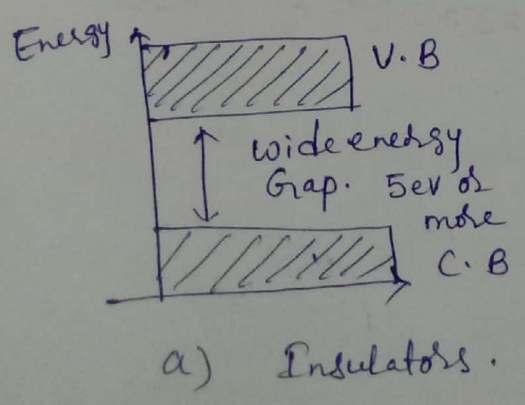 Energy
V.B
wide energy
Gap. 5ev or
more
C.B
a) Insulators.